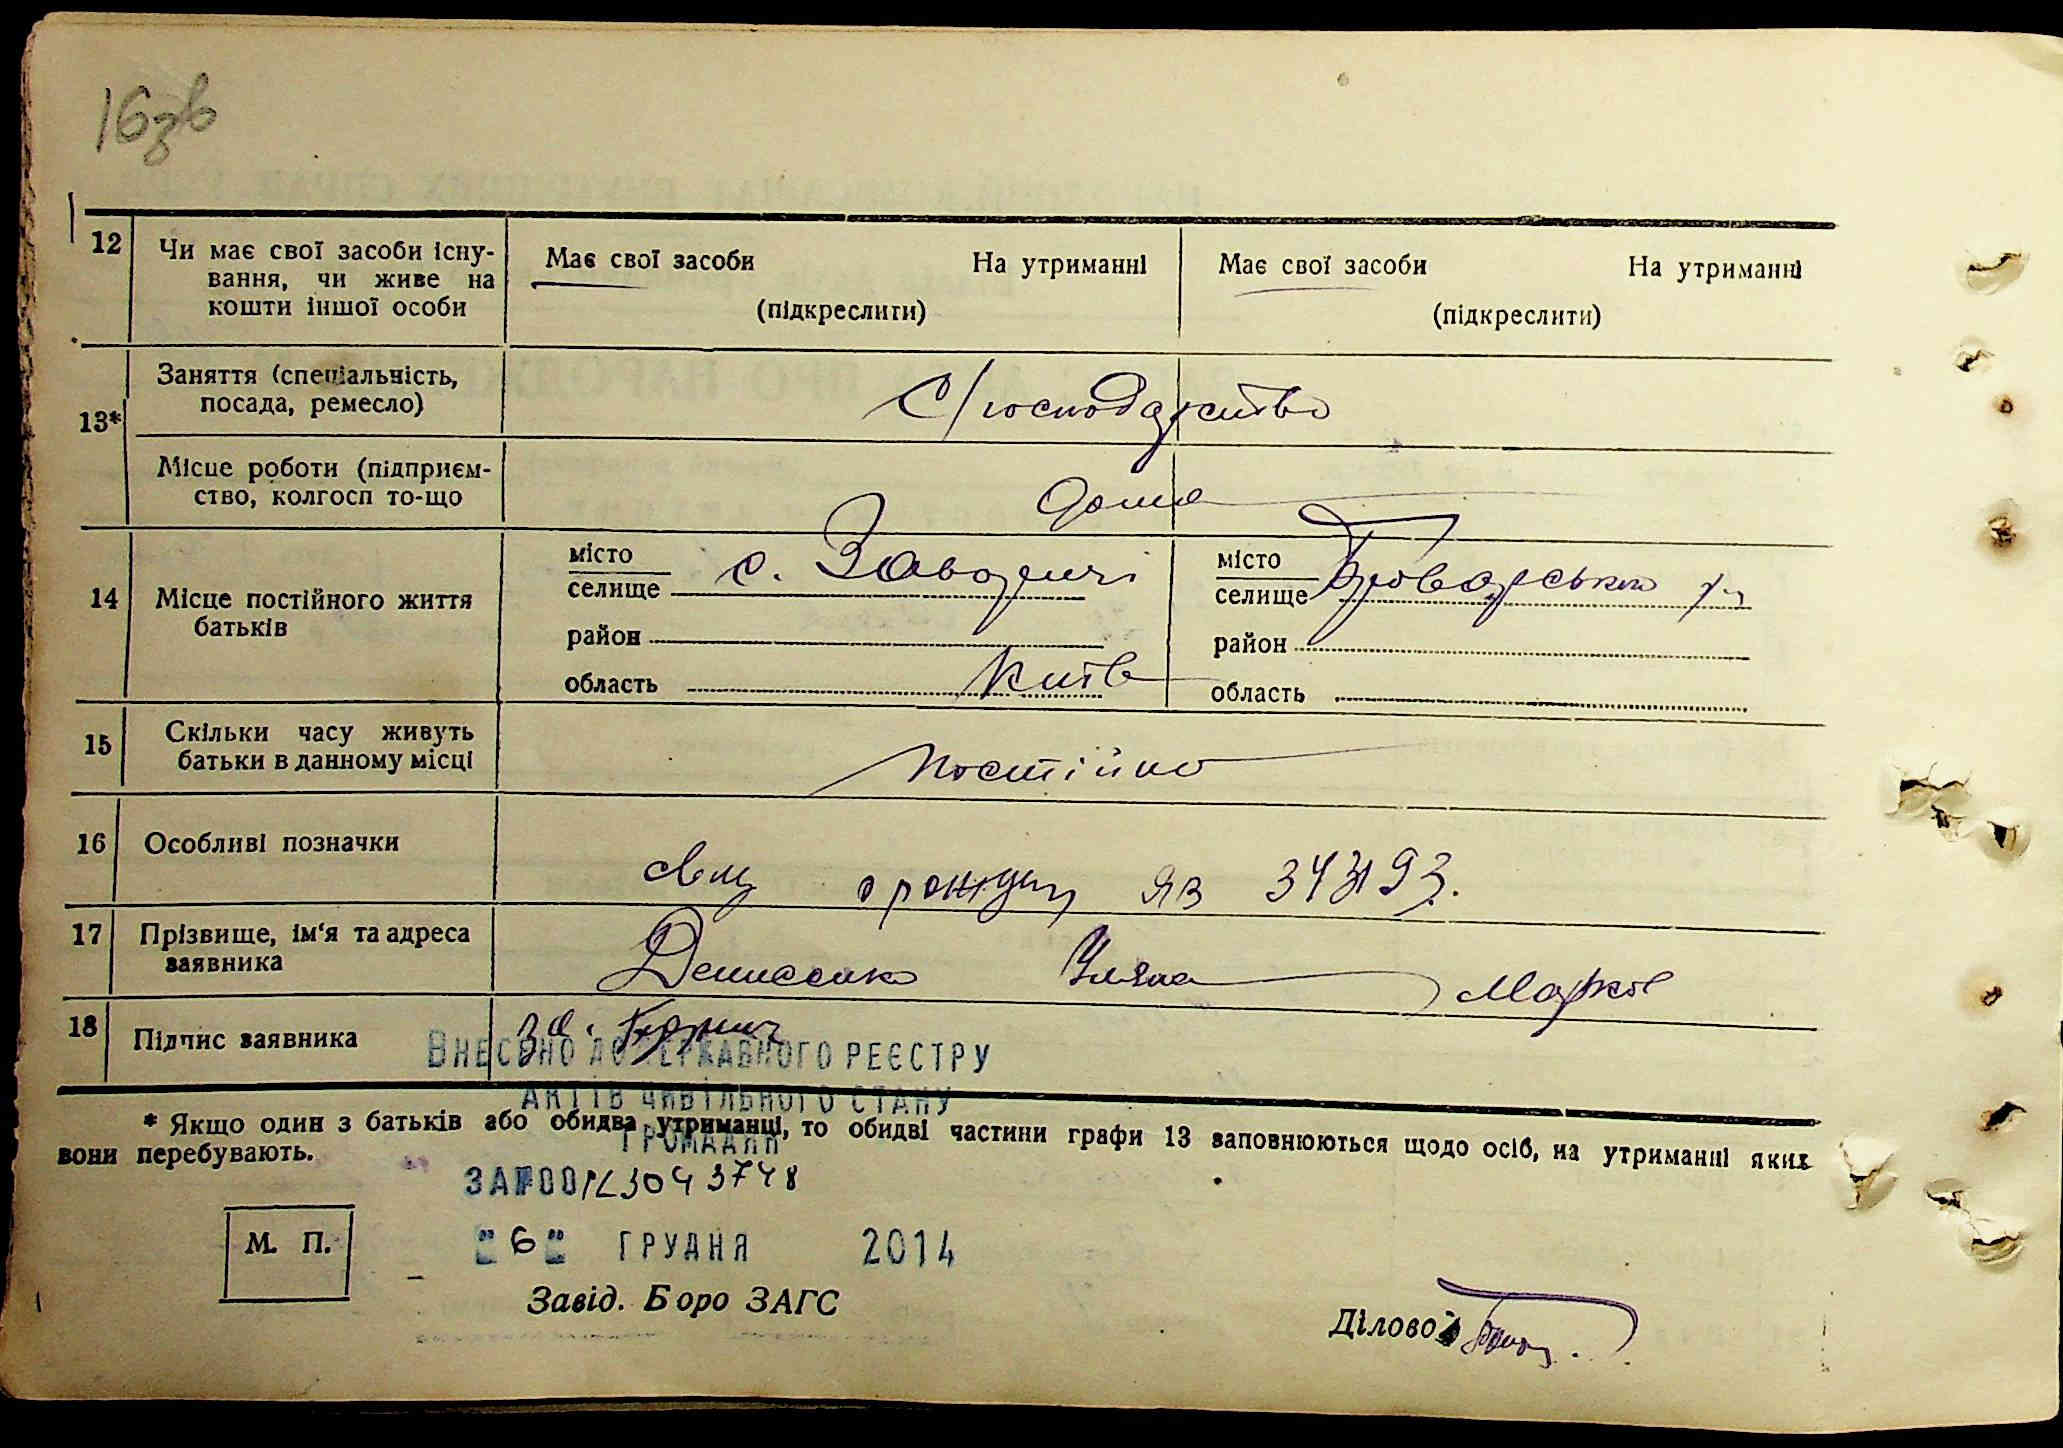 16зв
12 Чи має свої засоби існу-
вання, чи живе на
кошти іншої особи
Має свої засоби На утриманні
(підкреслити)
Має свої засоби На утриманні
(підкреслити)
13*
Заняття (спеціальність,
посада, ремесло)
С/господарство
Місце роботи (підприєм-
ство, колгосп то-що
дома
14 Місце постійного життя
батьків
місто
селище с.
район
область Київ
місто
селище Броварського р-н
район
область
15 Скільки часу живуть
батьки в данному місці
постійно
16 Особливі позначки
ЯВ
17 Прізвище, ім'я та адреса
заявника
Денисенко Уляна Марков
18 Підпис заявника
за.
Внесено до Державного реєстру
актів цивільного стану
громадян
* Якщо один з батьків або обидва утриманці, то обидві частини графи 13 заповнюються щодо осіб, на утриманні яких
вони перебувають.
М. П.
"6" грудня 2014
Завід. Боро ЗАГС
Діловод